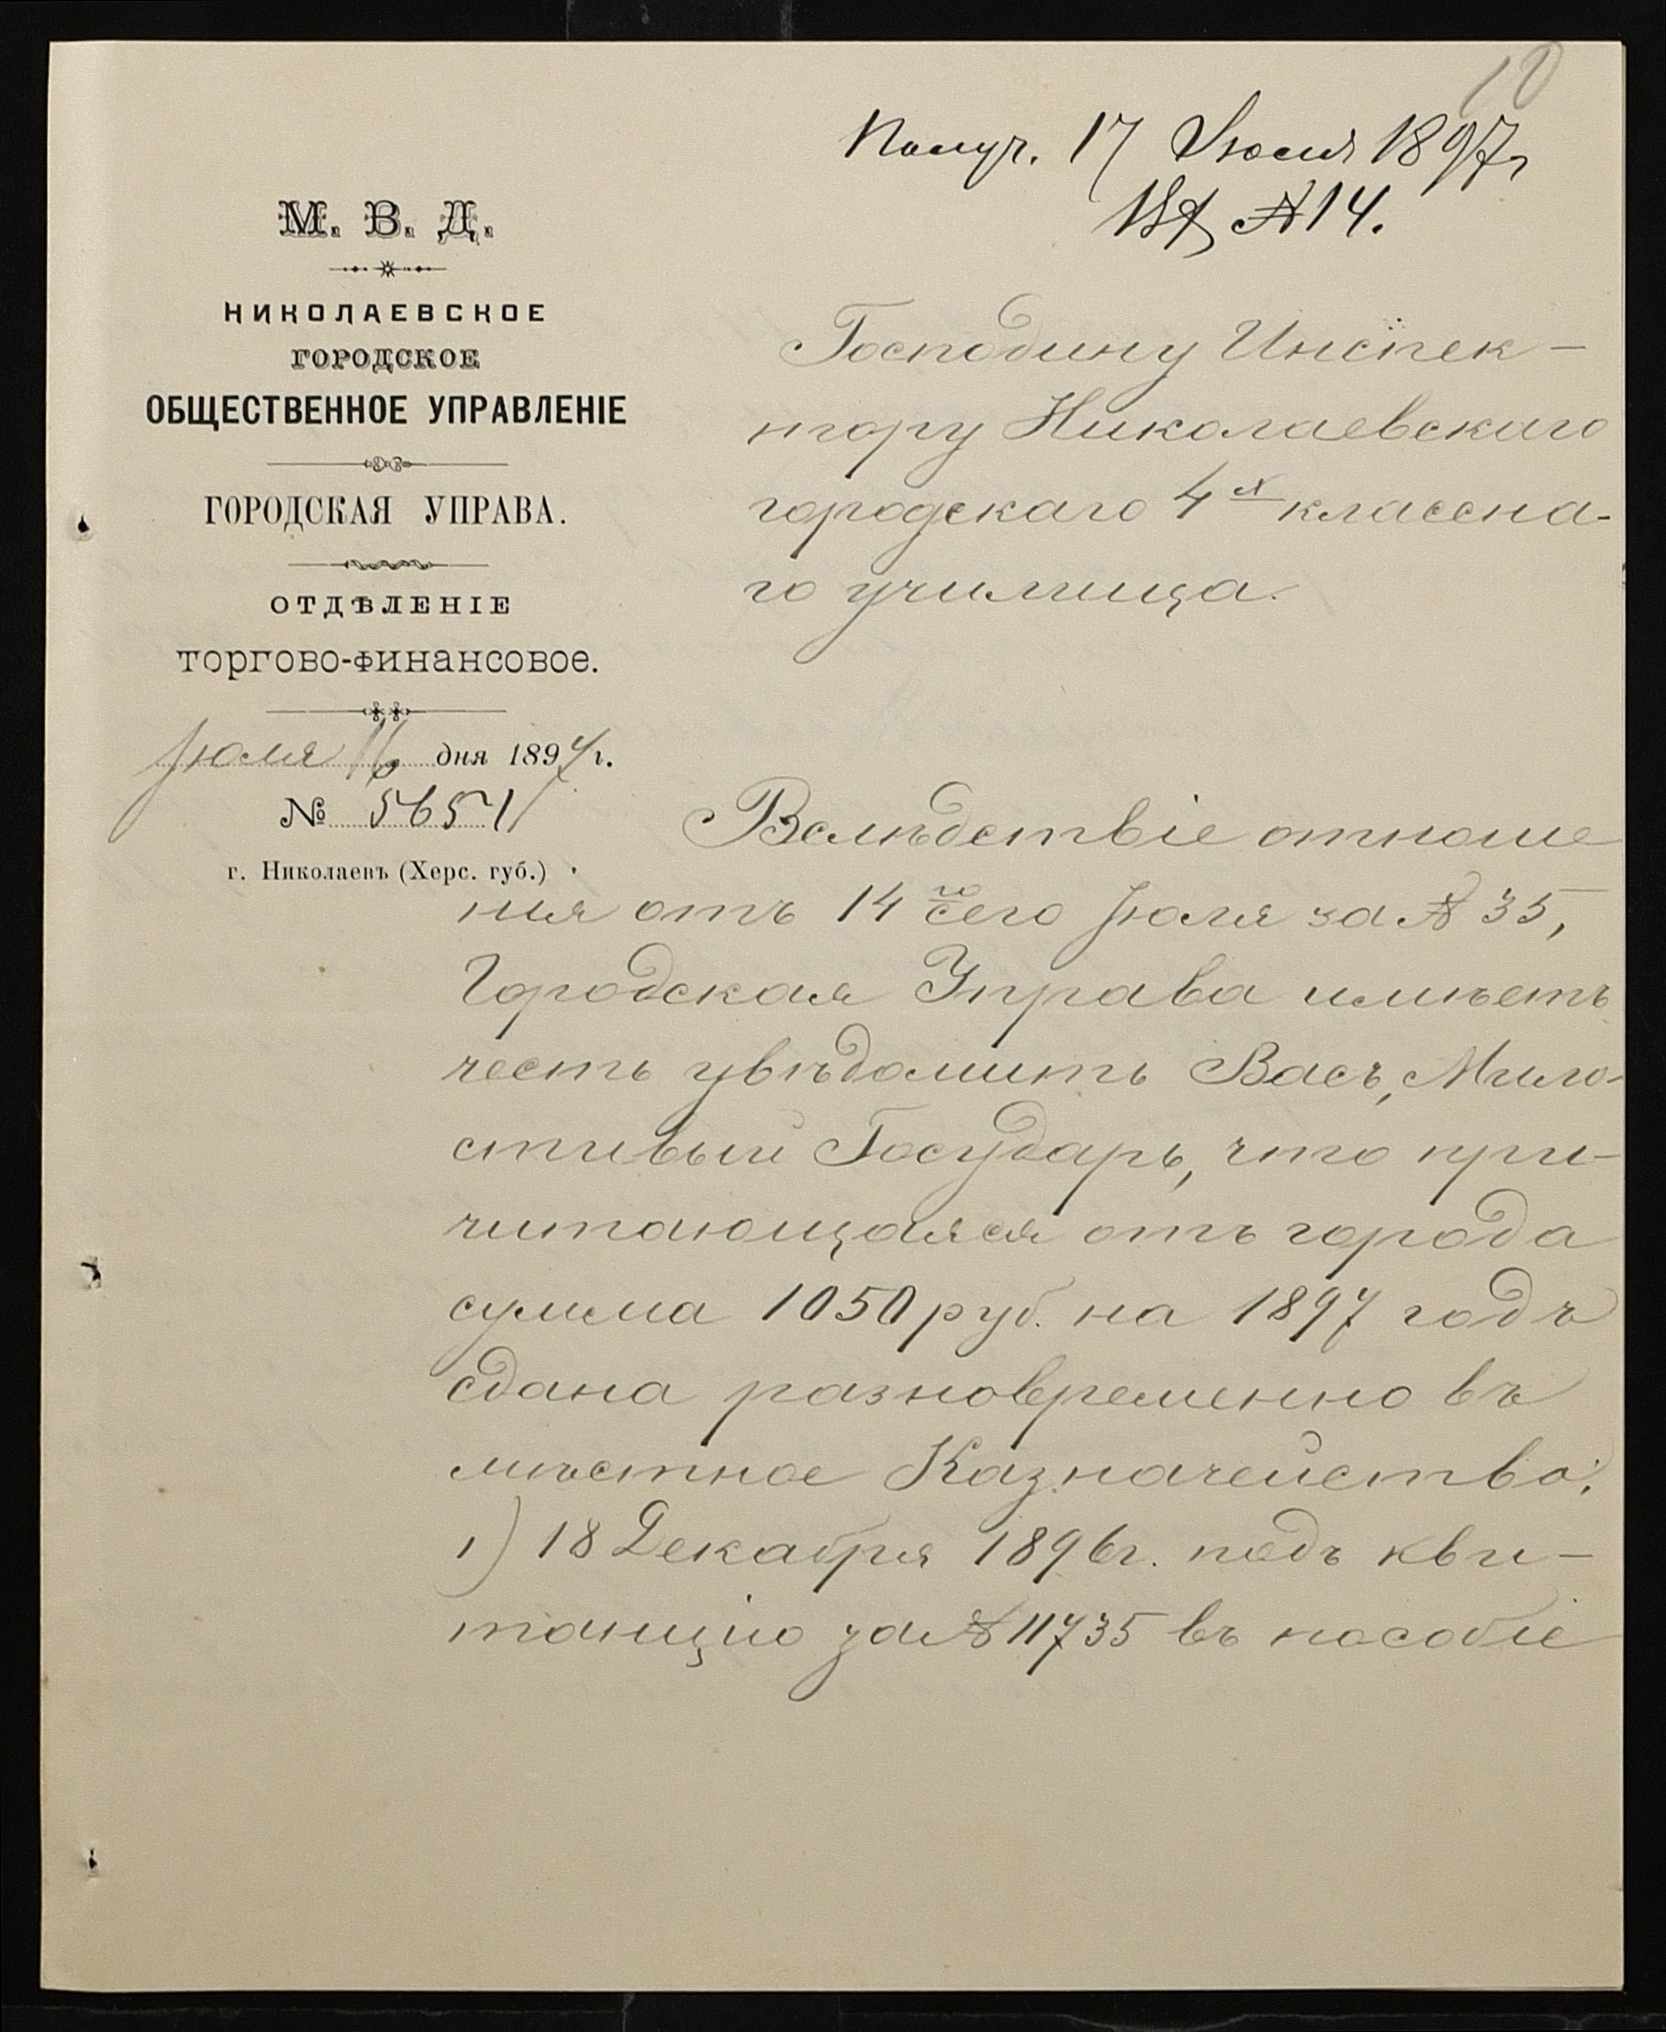 10
Получ. 17 Июля 1897 г.
Вх № 14.
М. В. Д.
НИКОЛАЕВСКОЕ
ГОРОДСКОЕ
ОБЩЕСТВЕННОЕ УПРАВЛЕНІЕ
ГОРОДСКАЯ УПРАВА.
ОТДѢЛЕНІЕ
ТОРГОВО-ФИНАНСОВОЕ.
Іюля 16 дня 1897 г.
№ 5651
г. Николаевъ (Херс. губ.)
Господину Инспек-
тору Николаевскаго
городскаго 4х класснa-
го училища.
Вслѣдствіе отноше
нія отъ 14го сего Іюля за № 35,
Городская Управа имѣетъ
честь увѣдомить Васъ, Мило-
стивый Государь, что при-
читающаяся отъ города
сумма 1050 руб. на 1897 годъ
сдана разновременно въ
мѣстное Казначейство:
1) 18 Декабря 1896 г. подъ кви-
танцію за № 11735 въ пособіе